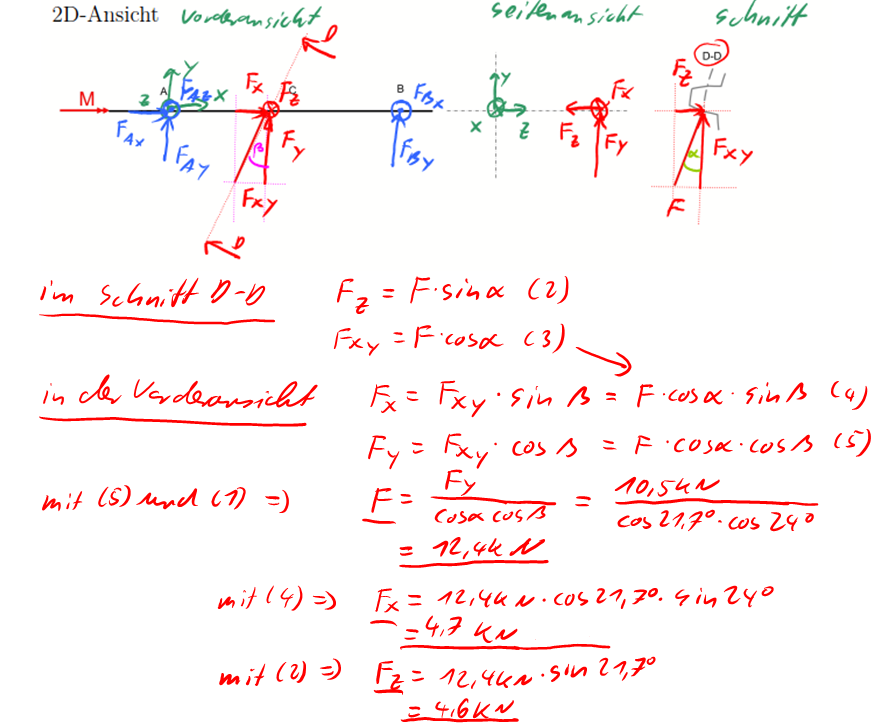 2D-Ansicht Vorderansicht seitenansicht schnitt
D D-D
Y Y
F_z
A F_Az X F_x C F_z B F_Bx F_x
M z
F_Ax X Z F_z F_y F_xy
F_Ay β F_y F_By α
F_xy F
D
im Schnitt D-D F_z = F·sinα (2)
F_xy = F·cosα (3)
in der Vorderansicht F_x = F_xy · sin β = F·cosα · sinβ (4)
F_y = F_xy · cos β = F · cosα·cosβ (5)
mit (5) und (1) => F = F_y / cosα cosβ = 10,5kN / cos21,7°·cos24°
= 12,4kN
mit (4) => F_x = 12,4kN·cos21,7°·sin24°
= 4,7 kN
mit (2) => F_z = 12,4kN·sin21,7°
= 4,6kN